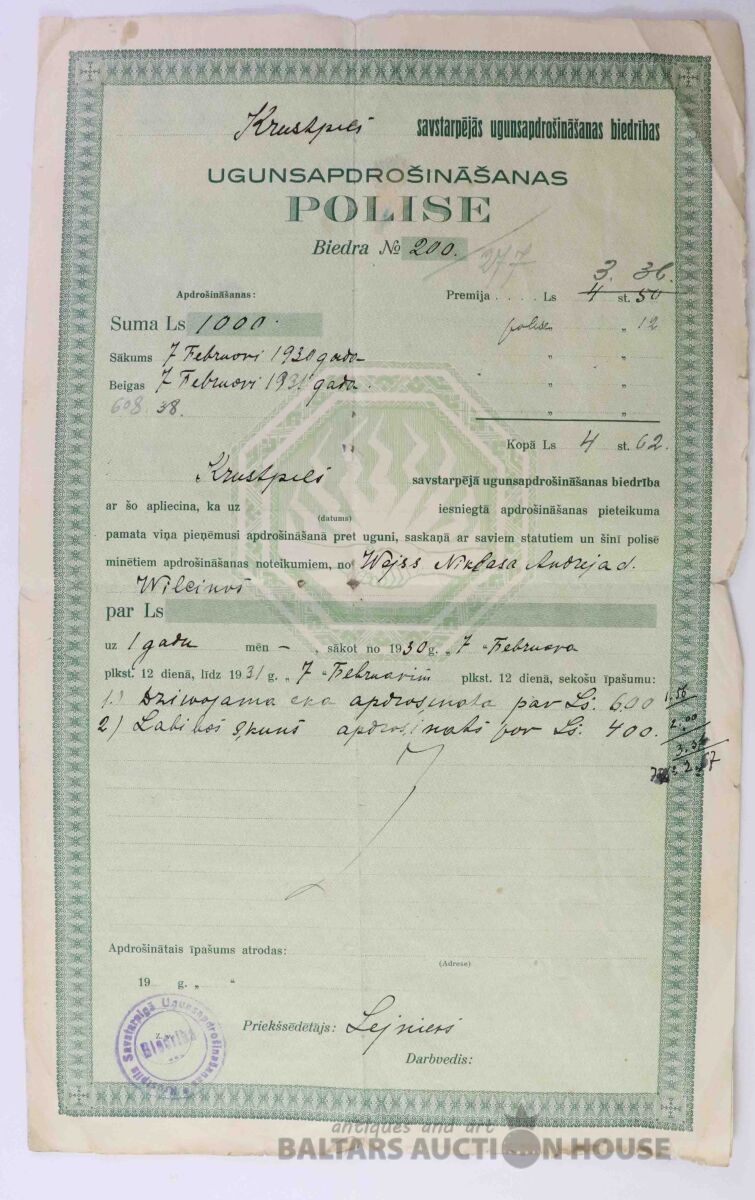 Krustpils savstarpējās ugunsapdrošināšanas biedrības
UGUNSAPDROŠINĀŠANAS
POLISE
Biedra № 200. 277
3. 36.
Apdrošināšanas: Premija . . . . Ls 4 st. 50
Suma Ls 1000. polise „ 12
Sākums 7 Februari 1930 gada „ „
Beigas 7 Februari 1931 gada. „ „
608. 38. „ „
Kopā Ls 4 st. 62.
Krustpils savstarpējā ugunsapdrošināšanas biedrība
ar šo apliecina, ka uz iesniegtā apdrošināšanas pieteikuma
(datums)
pamata viņa pieņēmusi apdrošināšanā pret uguni, saskaņā ar saviem statutiem un šinī polisē
minētiem apdrošināšanas noteikumiem, no Wajss Niklasa Andreja d.
Wilcinos
par Ls
uz 1 gadu mēn – , sākot no 1930 g. „ 7 “ Februara
plkst. 12 dienā, līdz 1931 g. „ 7 “ Februarim plkst. 12 dienā, sekošu īpašumu:
1.) Dziwojama eka apdrosinata par Ls. 600 1.36
2) Labibas skuns apdrosinats par Ls. 400. 2.00
3.36
Apdrošinātais īpašums atrodas:
(Adrese)
19 g. „ “
Priekšsēdētājs: Lejnieks
Darbvedis:
Krustpils Savstarpīgā Ugunsapdrošināšanas
Biedrība
antiques and art
BALTARS AUCTION HOUSE